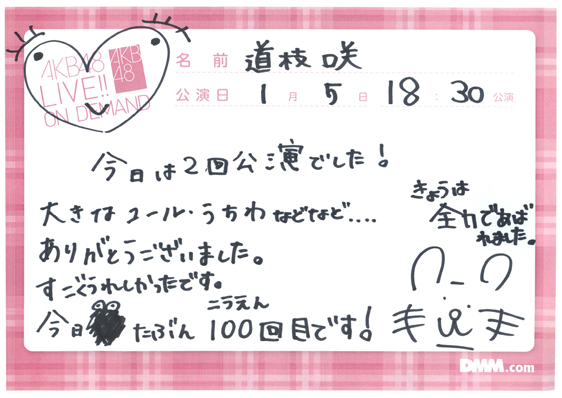 AKB48
LIVE!!
ON DEMAND
AKB
48
名前 道枝咲
公演日 1月5日 18:30公演
今日は2回公演でした!
大きなコール・うちわなどなど....
ありがとうございました。
すごくうれしかったです。
今日 たぶん 100回目です!
こうえん
きょうは
全力であば
れました。
DMM.com